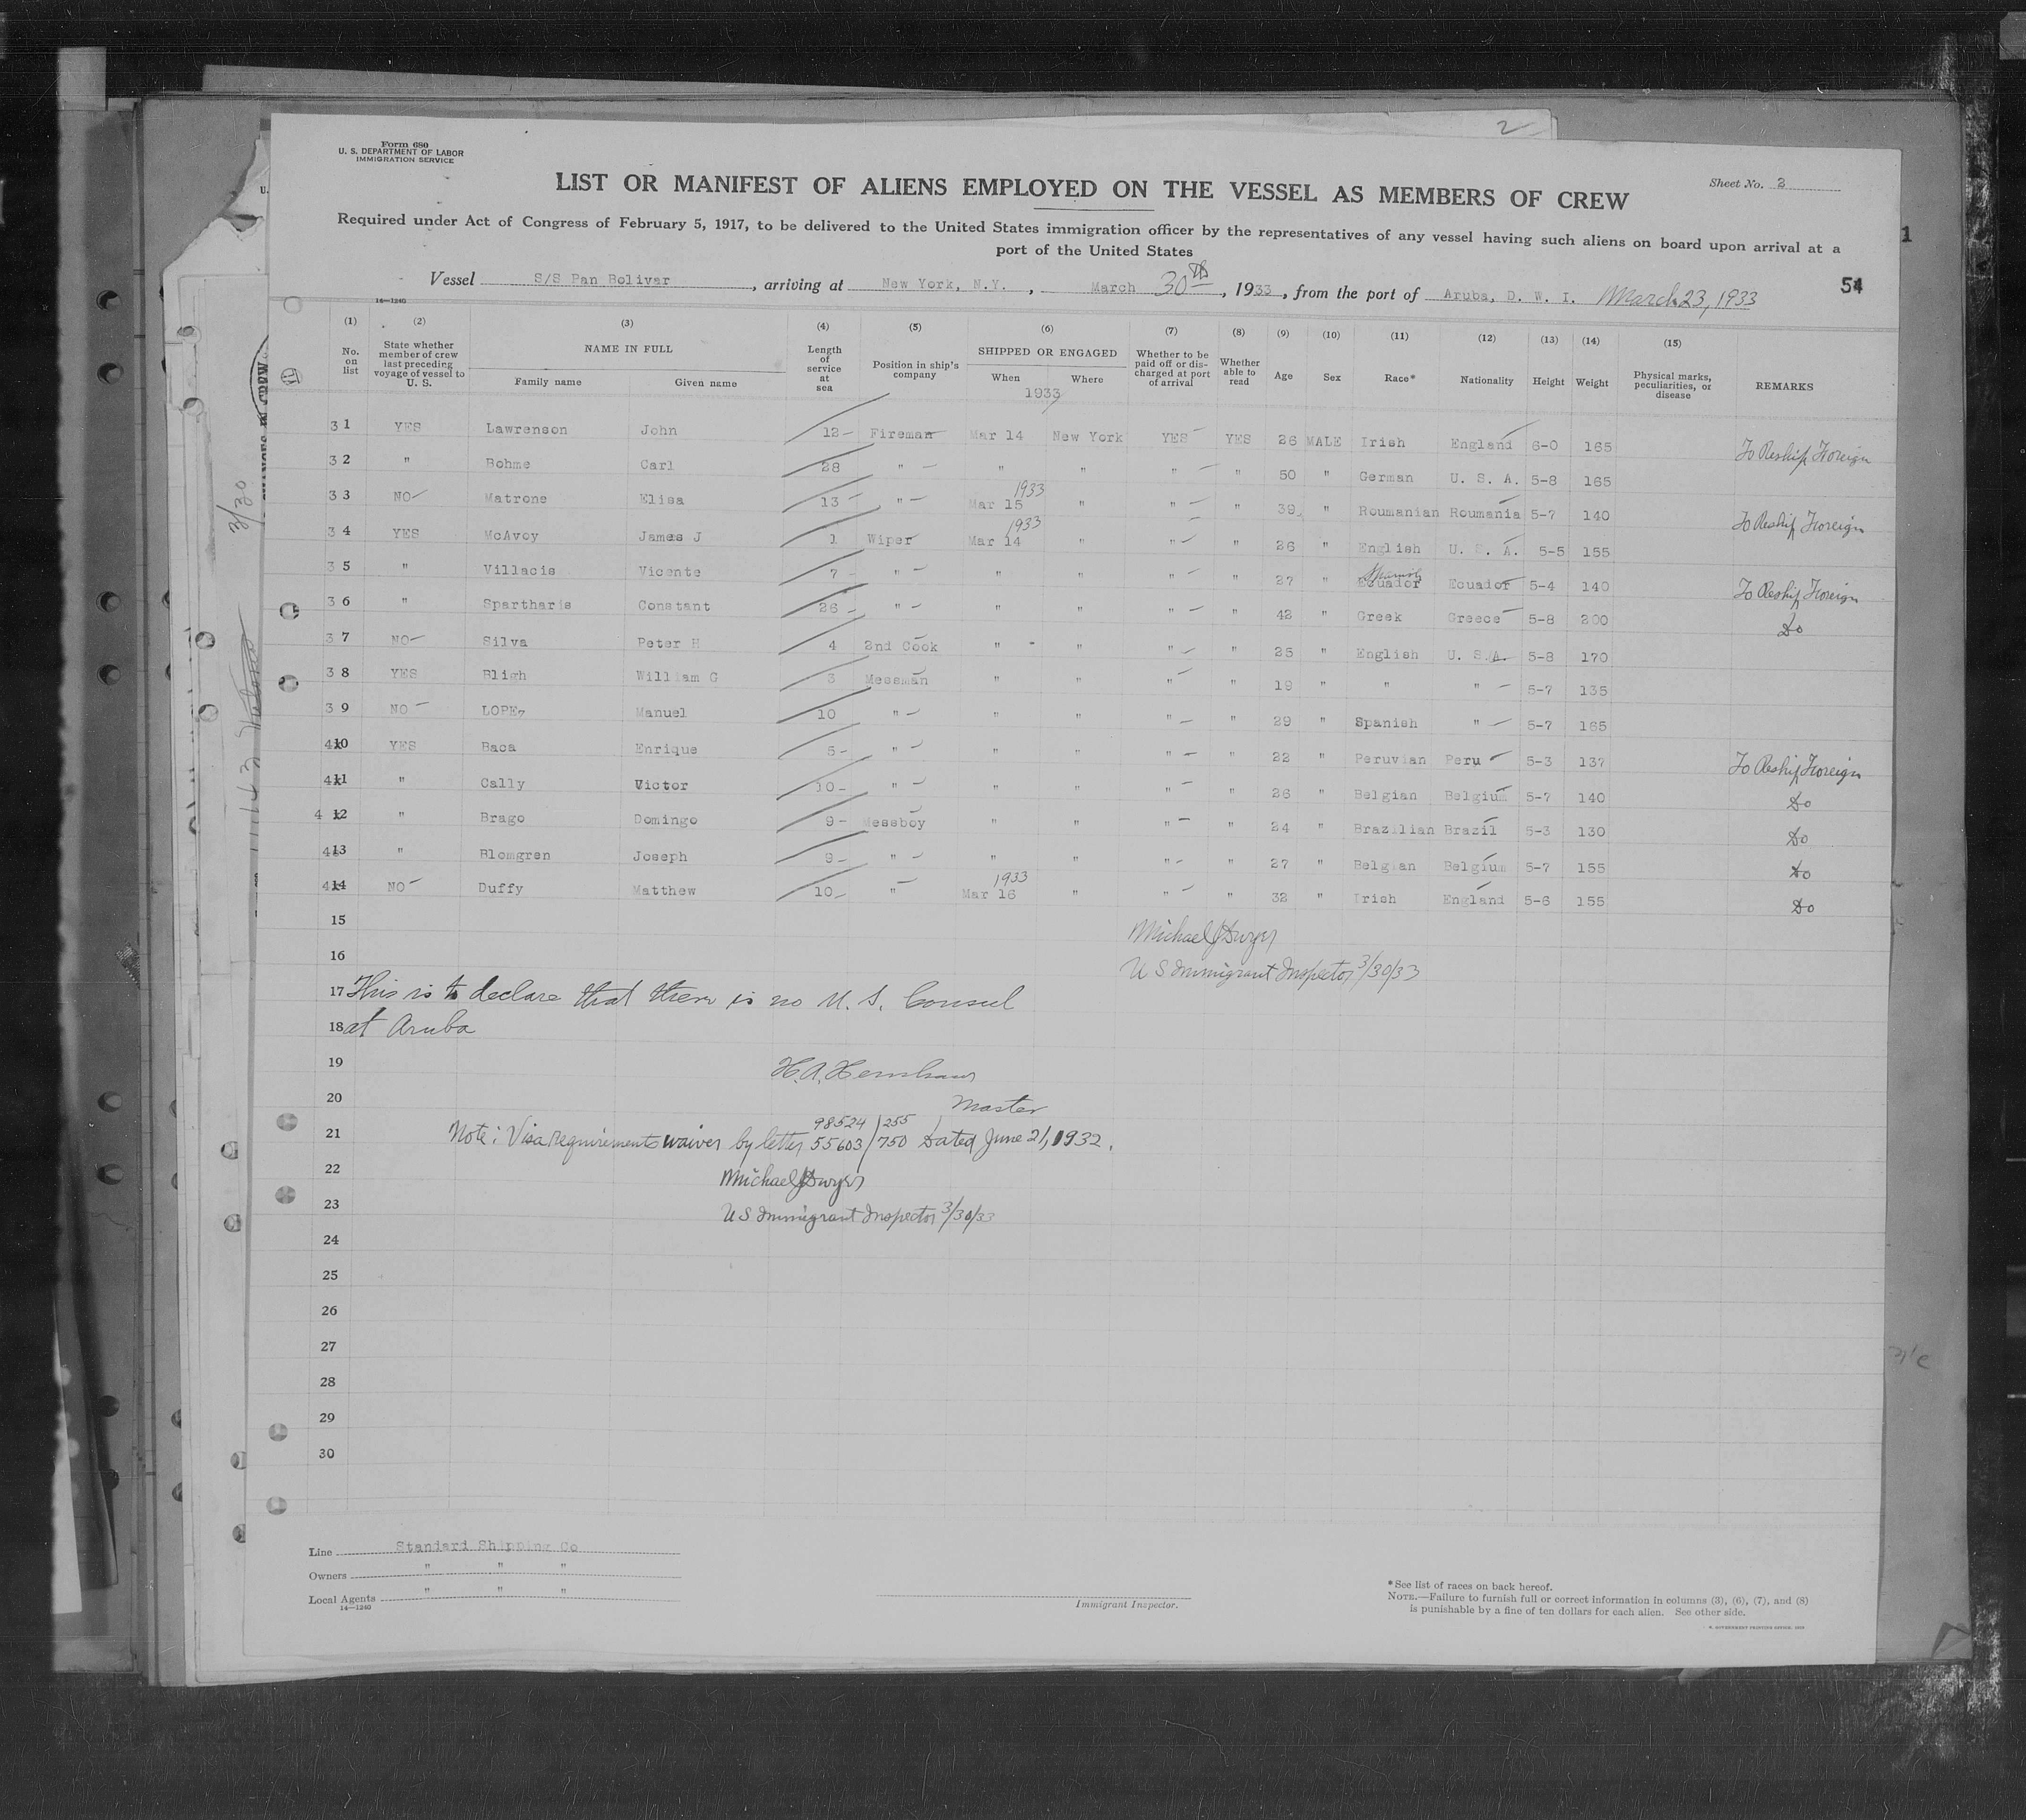 2
Form 680
U. S. DEPARTMENT OF LABOR
IMMIGRATION SERVICE
Sheet No. 2
LIST OR MANIFEST OF ALIENS EMPLOYED ON THE VESSEL AS MEMBERS OF CREW
Required under Act of Congress of February 5, 1917, to be delivered to the United States immigration officer by the representatives of any vessel having such aliens on board upon arrival at a
port of the United States
1
Vessel S/S Pan Bolivar, arriving at New York, N.Y., March 30th, 1933, from the port of Aruba, D. W. I. March 23, 1933
54
14—1240
(1) (2) (3) (4) (5) (6) (7) (8) (9) (10) (11) (12) (13) (14) (15)
No. on list State whether member of crew last preceding voyage of vessel to U. S. NAME IN FULL Family name Given name Length of service at sea Position in ship's company SHIPPED OR ENGAGED When Where Whether to be paid off or discharged at port of arrival Whether able to read Age Sex Race* Nationality Height Weight Physical marks, peculiarities, or disease REMARKS
1933
3 1 YES Lawrenson John 12 Fireman Mar 14 New York YES YES 26 MALE Irish England 6-0 165 To Reship Foreign
3 2 " Bohme Carl 28 " " " " " 50 " German U. S. A. 5-8 165
3 3 NO Matrone Elisa 13 " 1933 Mar 15 " " " 39 " Roumanian Roumania 5-7 140 To Reship Foreign
3 4 YES McAvoy James J 1 Wiper 1933 Mar 14 " " " 26 " English U. S. A. 5-5 155
3 5 " Villacis Vicente 7 " " " " " 27 " Ecuador Spanish Ecuador 5-4 140 To Reship Foreign
3 6 " Spartharis Constant 26 " " " " " 42 " Greek Greece 5-8 200 Do
3 7 NO Silva Peter H 4 2nd Cook " " " " 25 " English U. S.A. 5-8 170
3 8 YES Bligh William G 3 Messman " " " " 19 " " " 5-7 135
3 9 NO LOPEz Manuel 10 " " " " " 29 " Spanish " 5-7 165
4 10 YES Baca Enrique 5 " " " " " 22 " Peruvian Peru 5-3 137 To Reship Foreign
4 11 " Cally Victor 10 " " " " " 26 " Belgian Belgium 5-7 140 Do
4 12 " Brago Domingo 9 Messboy " " " " 24 " Brazilian Brazil 5-3 130 Do
4 13 " Blomgren Joseph 9 " " " " " 27 " Belgian Belgium 5-7 155 Do
4 14 NO Duffy Matthew 10 " 1933 Mar 16 " " " 32 " Irish England 5-6 155 Do
15 Michael J Dwyer
16 U S Immigrant Inspector 3/30/33
17 This is to declare that there is no U. S. Consul
18 at Aruba
19 H. A. Henshaw
20 Master
21 Note: Visa requirements waiver by letter 98524/255 55603/750 Dated June 21, 1932.
22 Michael J Dwyer
23 U S Immigrant Inspector 3/30/33
24
25
26
27
28
29
30
Line Standard Shipping Co
Owners " " "
Local Agents " " "
14—1240
Immigrant Inspector.
*See list of races on back hereof.
NOTE.—Failure to furnish full or correct information in columns (3), (6), (7), and (8)
is punishable by a fine of ten dollars for each alien. See other side.
3/30